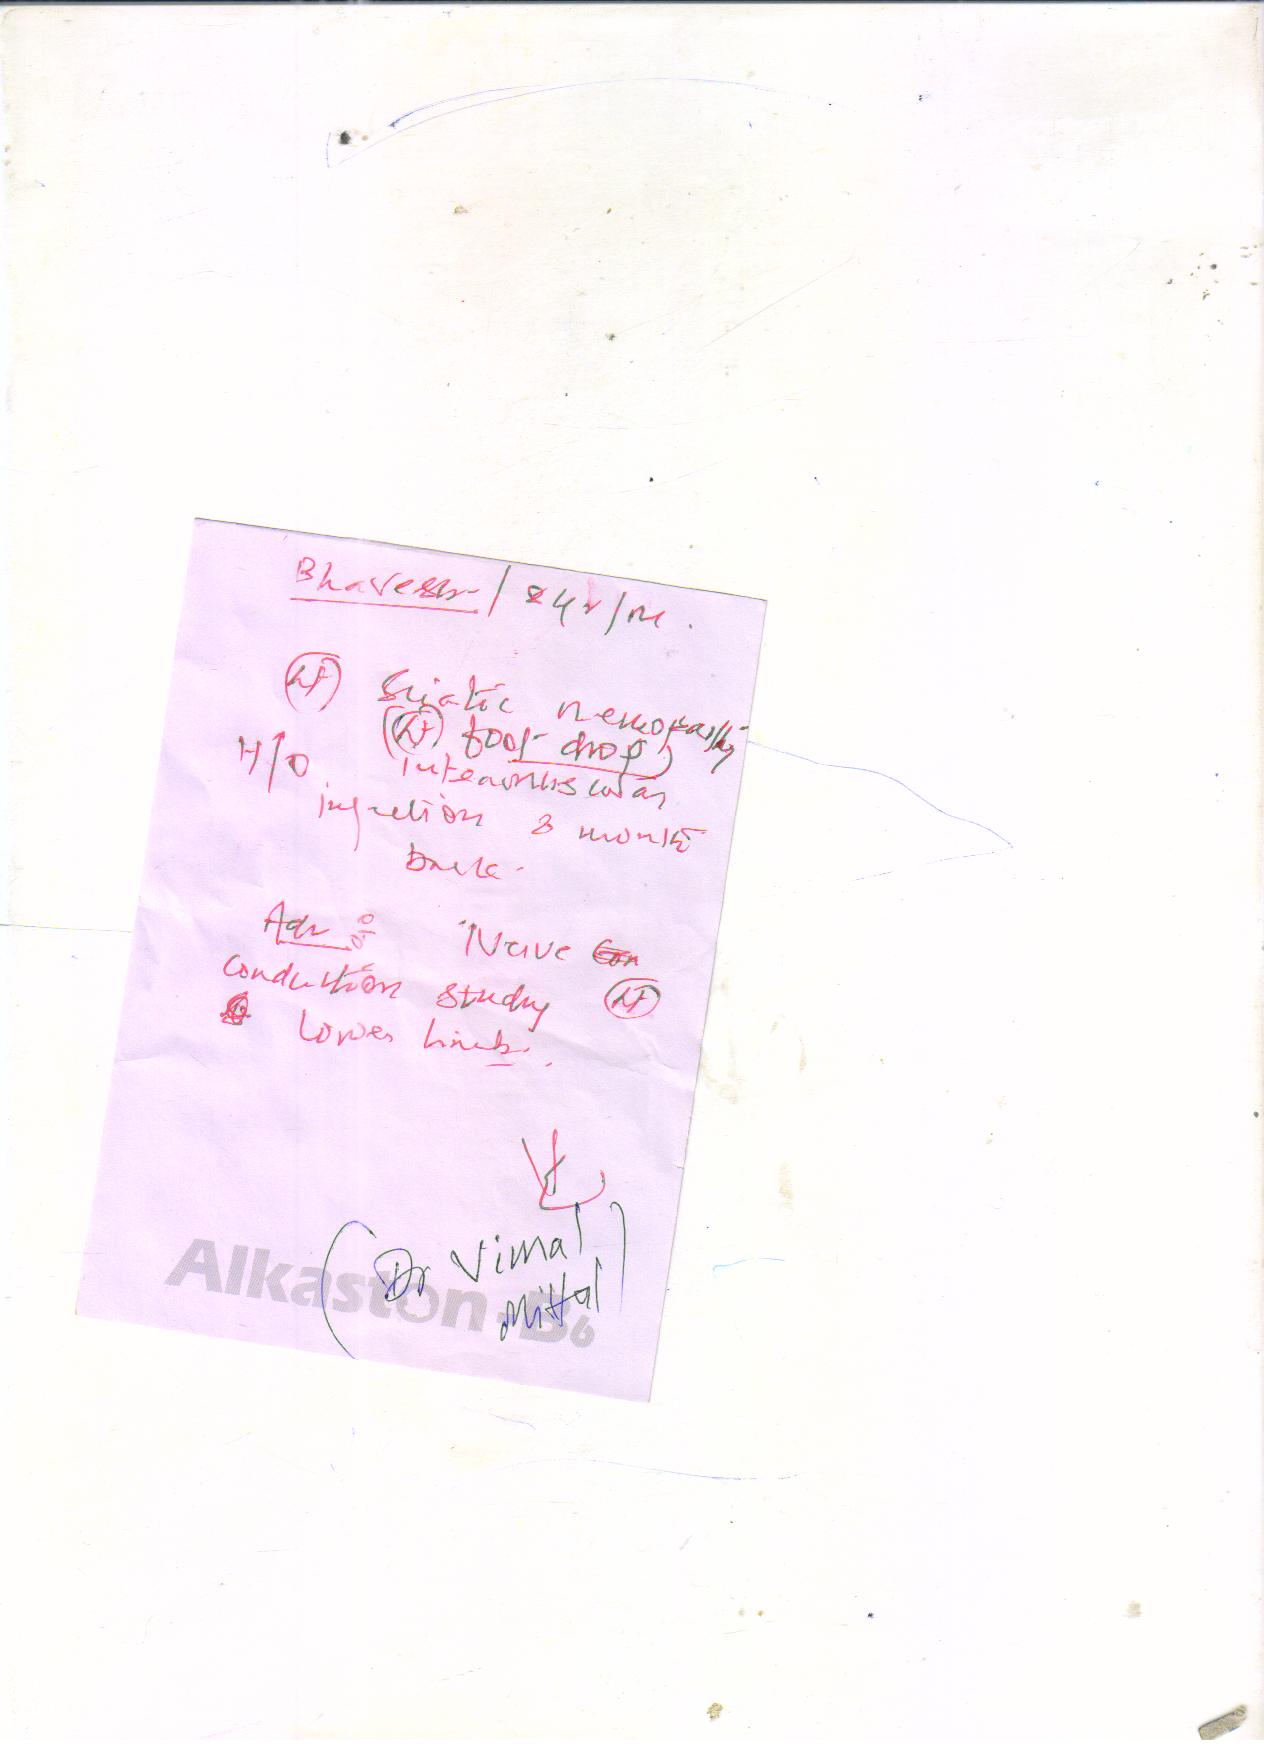 Bhavesh / 8 yr / M.
Lt Sciatic neuropathy
(Lt foot drop)
H/O Intramuscular
injection 3 month
back.
Adv Nerve Con
conduction study Lt
Lower Limb.
(Dr Vimal
Mittal)
Alkaston-B6